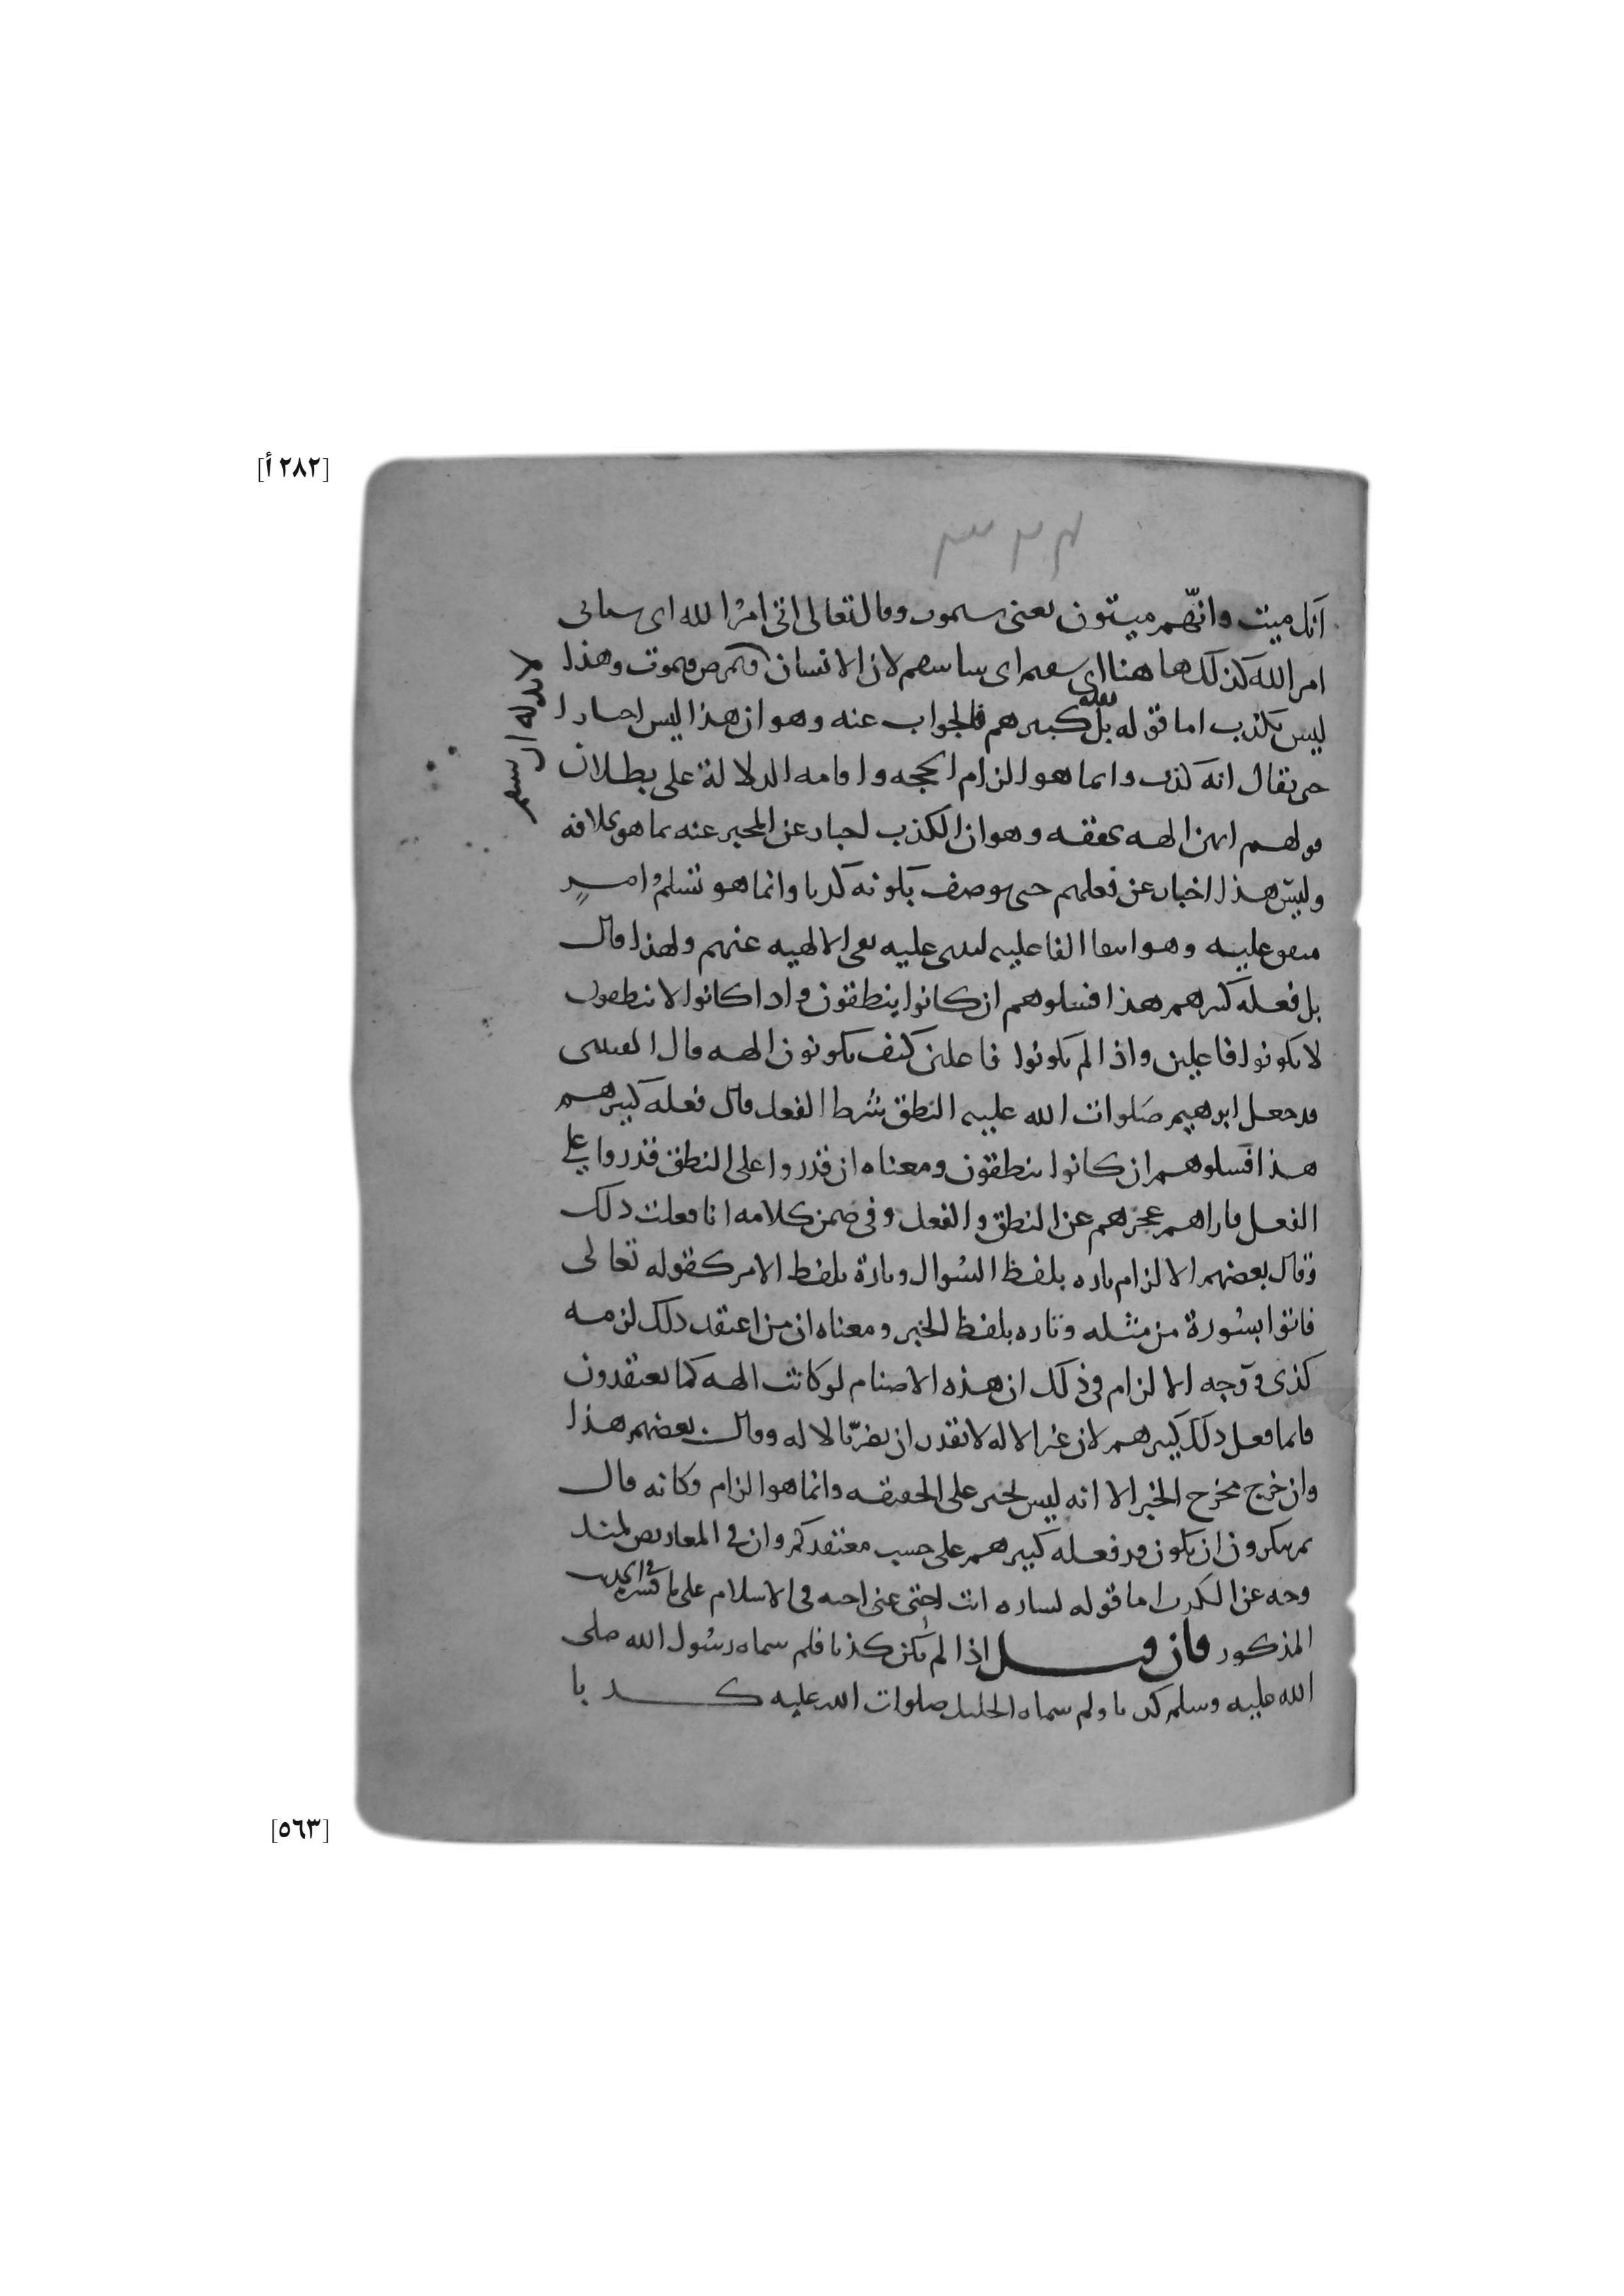 [٢٨٢ أ]
٣٣٤
انك ميت وانهم ميتون يعنى ستموت وقال تعالى اتى امر الله اى سياتى
امر الله كذلك هاهنا اى سقيم اى ساسقم لان الانسان يمرض ويموت وهذا
لا بد له ان يسقم
ليس بكذب اما قوله بل فعله كبيرهم فالجواب عنه وهو ان هذا ليس اخبارا
حتى يقال انه كذب وانما هو الزام الحجه واقامه الدلالة على بطلان
قولهم الهه تحققه وهو ان الكذب اخبار عن المخبر عنه بما هو بخلافه
وليس هذا اخبار عن فعلهم حتى يوصف بكونه كذبا وانما هو تسليم امر
متفق عليه وهو انتفا الفاعليه ليبنى عليه نفى الالهيه عنهم ولهذا قال
بل فعله كبيرهم هذا فسلوهم ان كانوا ينطقون واذا كانوا لا ينطقون
لا يكونوا فاعلين واذا لم يكونوا فاعلين كيف يكونون الهه قال القتبى
قد جعل ابرهيم صلوات الله عليه النطق شرط الفعل قال فعله كبيرهم
هذا فسلوهم ان كانوا ينطقون ومعناه ان قدروا على النطق قدروا على
الفعل فاراهم عجزهم عن النطق والفعل وفى ضمن كلامه انا فعلت ذلك
وقال بعضهم الالزام تاره بلفظ السوال وتارة بلفظ الامر كقوله تعالى
فاتوا بسورة من مثله وتاره بلفظ الخبر ومعناه ان من اعتقد ذلك لزمه
كذى ووجه الالزام فى ذلك ان هذه الاصنام لو كانت الهه كما تعتقدون
فانما فعل ذلك كبيرهم لان غير الاله لا يقدر ان يضر بالاله وقال بعضهم هذا
وان خرج مخرج الخبر الا انه ليس بخبر على الحقيقه وانما هو الزام وكانه قال
تنكرون ان يكون قد فعله كبيرهم على حسب معتقدكم وان فى المعاريض لمند
وحه عن الكذب اما قوله لساره انت اختى عنى اخته فى الاسلام على ما فسر فى الحديث
المذكور فان قيل اذا لم يكن كذبا فلم سماه رسول الله صلى
الله عليه وسلم كذبا ولم سماه الخليل صلوات الله عليه كذبا
[٥٦٣]